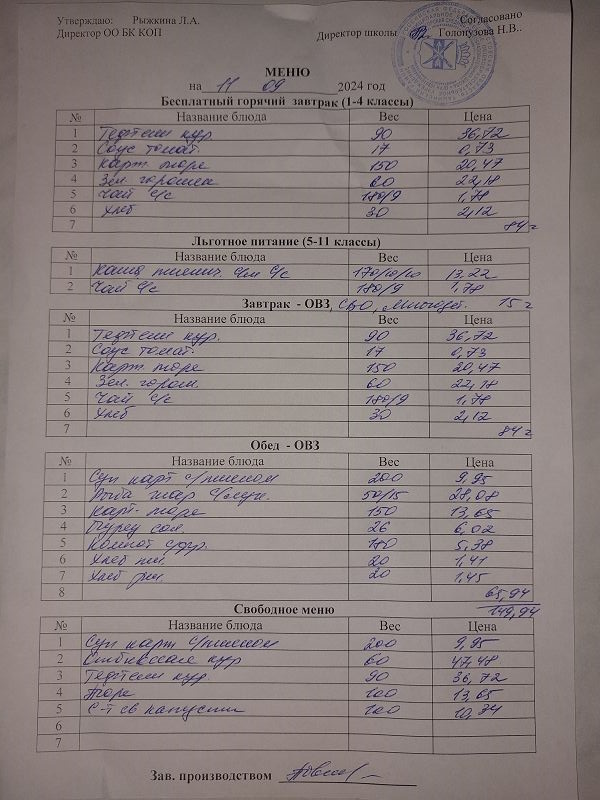 Утверждаю: Рыжкина Л.А. Согласовано
Директор ОО БК КОП Директор школы Голопузова Н.В..
МЕНЮ
на 11 09 2024 год
Бесплатный горячий завтрак (1-4 классы)
№ Название блюда Вес Цена
1 Тефтели кур 90 36,72
2 Соус томат. 17 0,73
3 Карт. пюре 150 20,47
4 Зел. горошек 60 22,18
5 Чай с/с 180/9 1,78
6 Хлеб 30 2,12
7 84 =
Льготное питание (5-11 классы)
№ Название блюда Вес Цена
1 Каша пшенич. с/м с/с 170/10/10 13,22
2 Чай с/с 180/9 1,78
Завтрак - ОВЗ, СВО, Многодет. 15 =
№ Название блюда Вес Цена
1 Тефтели кур. 90 36,72
2 Соус томат. 17 0,73
3 Карт. пюре 150 20,47
4 Зел. горош. 60 22,18
5 Чай с/с 180/9 1,78
6 Хлеб 30 2,12
7 84 =
Обед - ОВЗ
№ Название блюда Вес Цена
1 Суп карт с/пшеном 200 9,95
2 Рыба жар 50/15 28,08
3 Карт. пюре 150 13,65
4 Огурец сол. 26 6,02
5 Компот с/фр. 180 5,38
6 Хлеб пш. 20 1,41
7 Хлеб рж. 20 1,45
8 65,94
149,94
Свободное меню
№ Название блюда Вес Цена
1 Суп карт с/пшеном 200 9,95
2 кур 60 47,48
3 Тефтели кур. 90 36,72
4 Пюре 100 13,65
5 С-т св капусты 100 10,74
6
7
Зав. производством